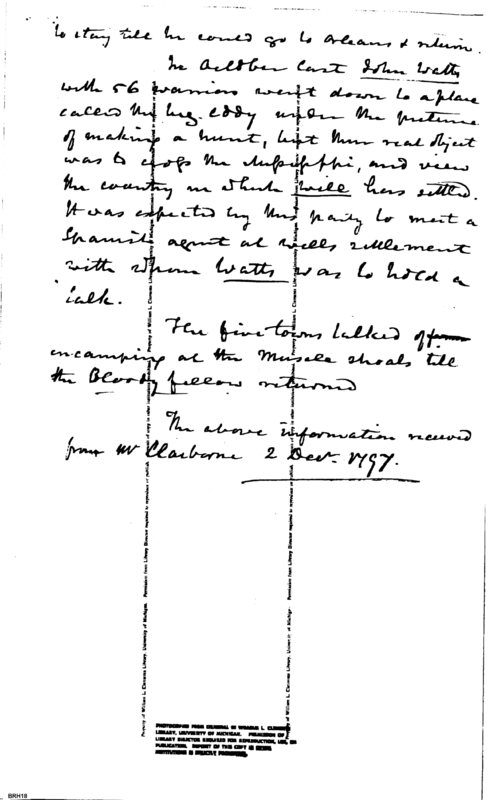 to stay till he could go to Orleans & return.
In October last John Watts
with 56 warriors went down to a place
called the big Eddy under the pretence
of making a hunt, but their real object
was to cross the Mississippi, and view
the country in which Will has settled.
It was expected by this party to meet a
Spanish agent at Wills settlement
with whom Watts was to hold a
talk.
The five towns talked of
encamping at the Muscle Shoals till
the Bloody fellow returned
The above information received
from Mr Claiborne 2 Decr. 1797.
Property of William L. Clements Library, University of Michigan. Permission from Library Director required to reproduce or publish
Property of William L. Clements Library, University of Michigan. Permission from Library Director required to reproduce or publish
PHOTOCOPIED FROM ORIGINAL IN WILLIAM L. CLEMENTS
LIBRARY, UNIVERSITY OF MICHIGAN. PERMISSION OF
LIBRARY DIRECTOR REQUIRED FOR REPRODUCTION, USE, OR
PUBLICATION. DEPOSIT OF THIS COPY IN OTHER
INSTITUTIONS IS STRICTLY PROHIBITED.
BRH18